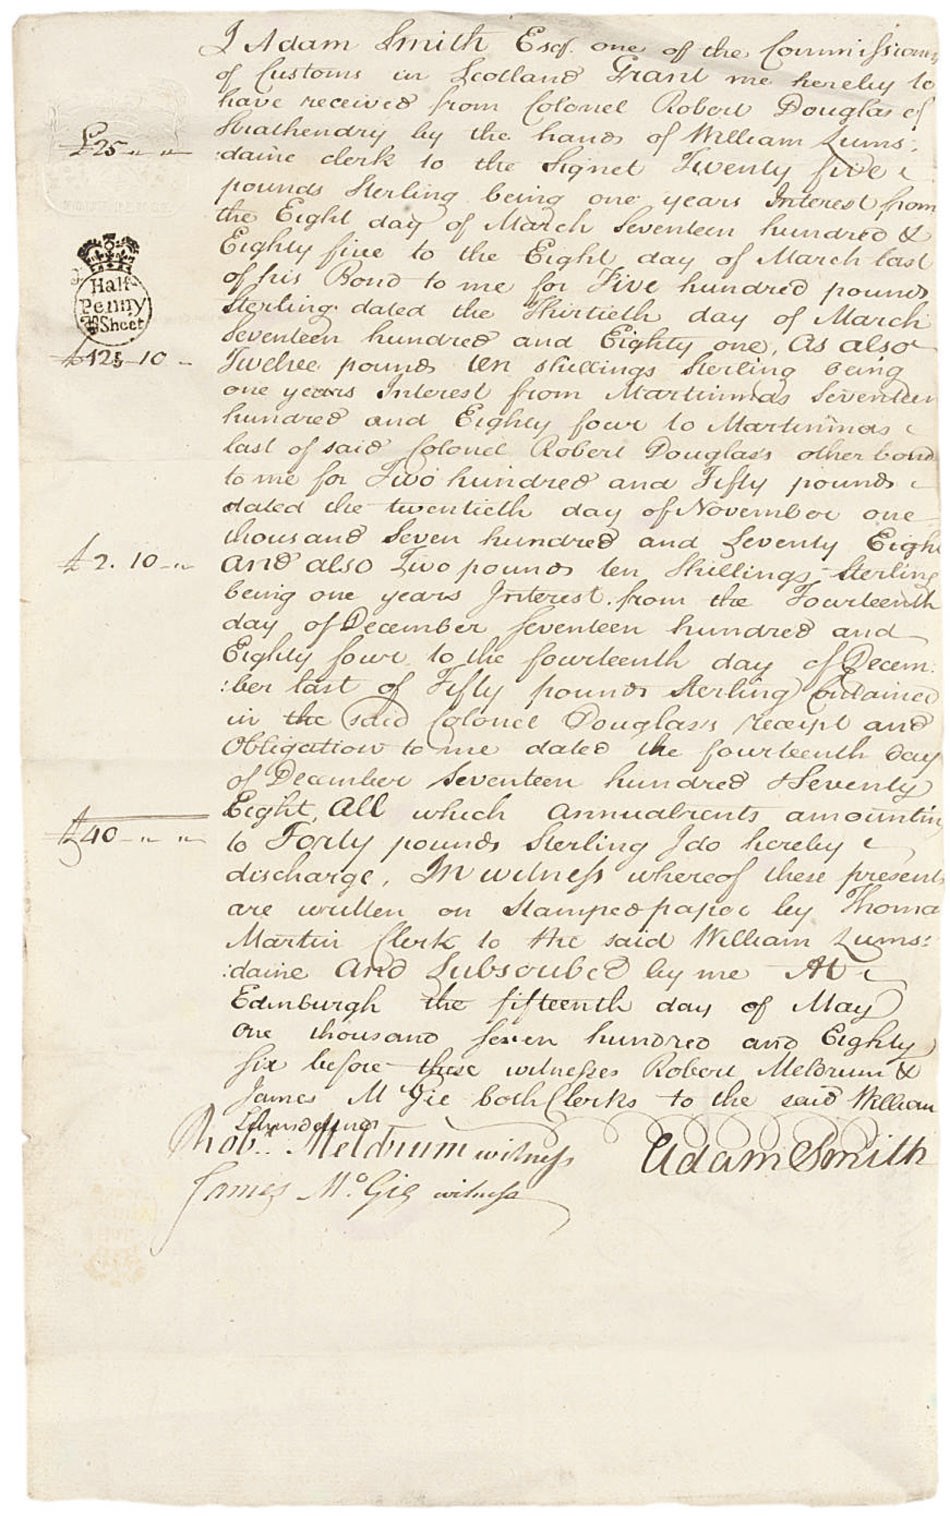 I Adam Smith Esqr. one of the Commissioners
of Customs in Scotland Grant me hereby to
have received from Colonel Robert Douglas of
Strathendry by the hands of William Lums:
£25 " "
:daine clerk to the Signet Twenty five
pounds Sterling being one years Interest from
the Eight day of March Seventeen hundred &
Eighty five to the Eight day of March last
of his Bond to me for Five hundred pounds
Half
Penny
Sheet
Sterling dated the Thirtieth day of March
Seventeen hundred and Eighty one, As also
£12 10 -
Twelve pounds ten shillings Sterling being
one years Interest from Martinmas Seventeen
hundred and Eighty four to Martinmas
last of said Colonel Robert Douglas's other bond
to me for Two hundred and Fifty pounds
dated the twentieth day of November one
thousand Seven hundred and Seventy Eight
£2. 10 - "
And also Two pounds ten Shillings Sterling
being one years Interest from the Fourteenth
day of December Seventeen hundred and
Eighty four to the fourteenth day of Decem:
:ber last of Fifty pounds Sterling Contained
in the said Colonel Douglas's receipt and
Obligation to me dated the fourteenth day
of December Seventeen hundred & Seventy
Eight, All which annualrents amounting
£40 - " - "
to Forty pounds Sterling I do hereby
discharge, In witness whereof these presents
are written on Stamped paper by Thomas
Martin Clerk to the said William Lums:
:daine And Subscribed by me At
Edinburgh the fifteenth day of May
one thousand seven hundred and Eighty
six before these witnesses Robert Meldrum &
James Mc Gie both Clerks to the said William
Lumsdaine
Robt. Meldrum witness
Adam Smith
James Mc Gie witness